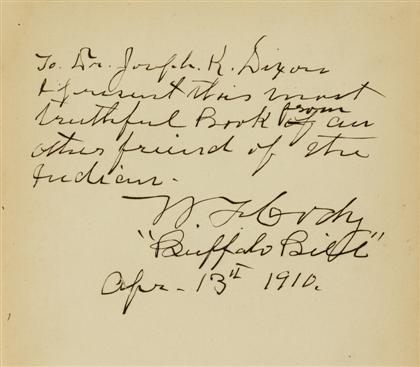 To Dr. Joseph. K. Dixon
I present this most
truthful Book from an
other friend of the
Indian.
W. F. Cody
"Buffalo Bill"
Apr - 13th 1910.